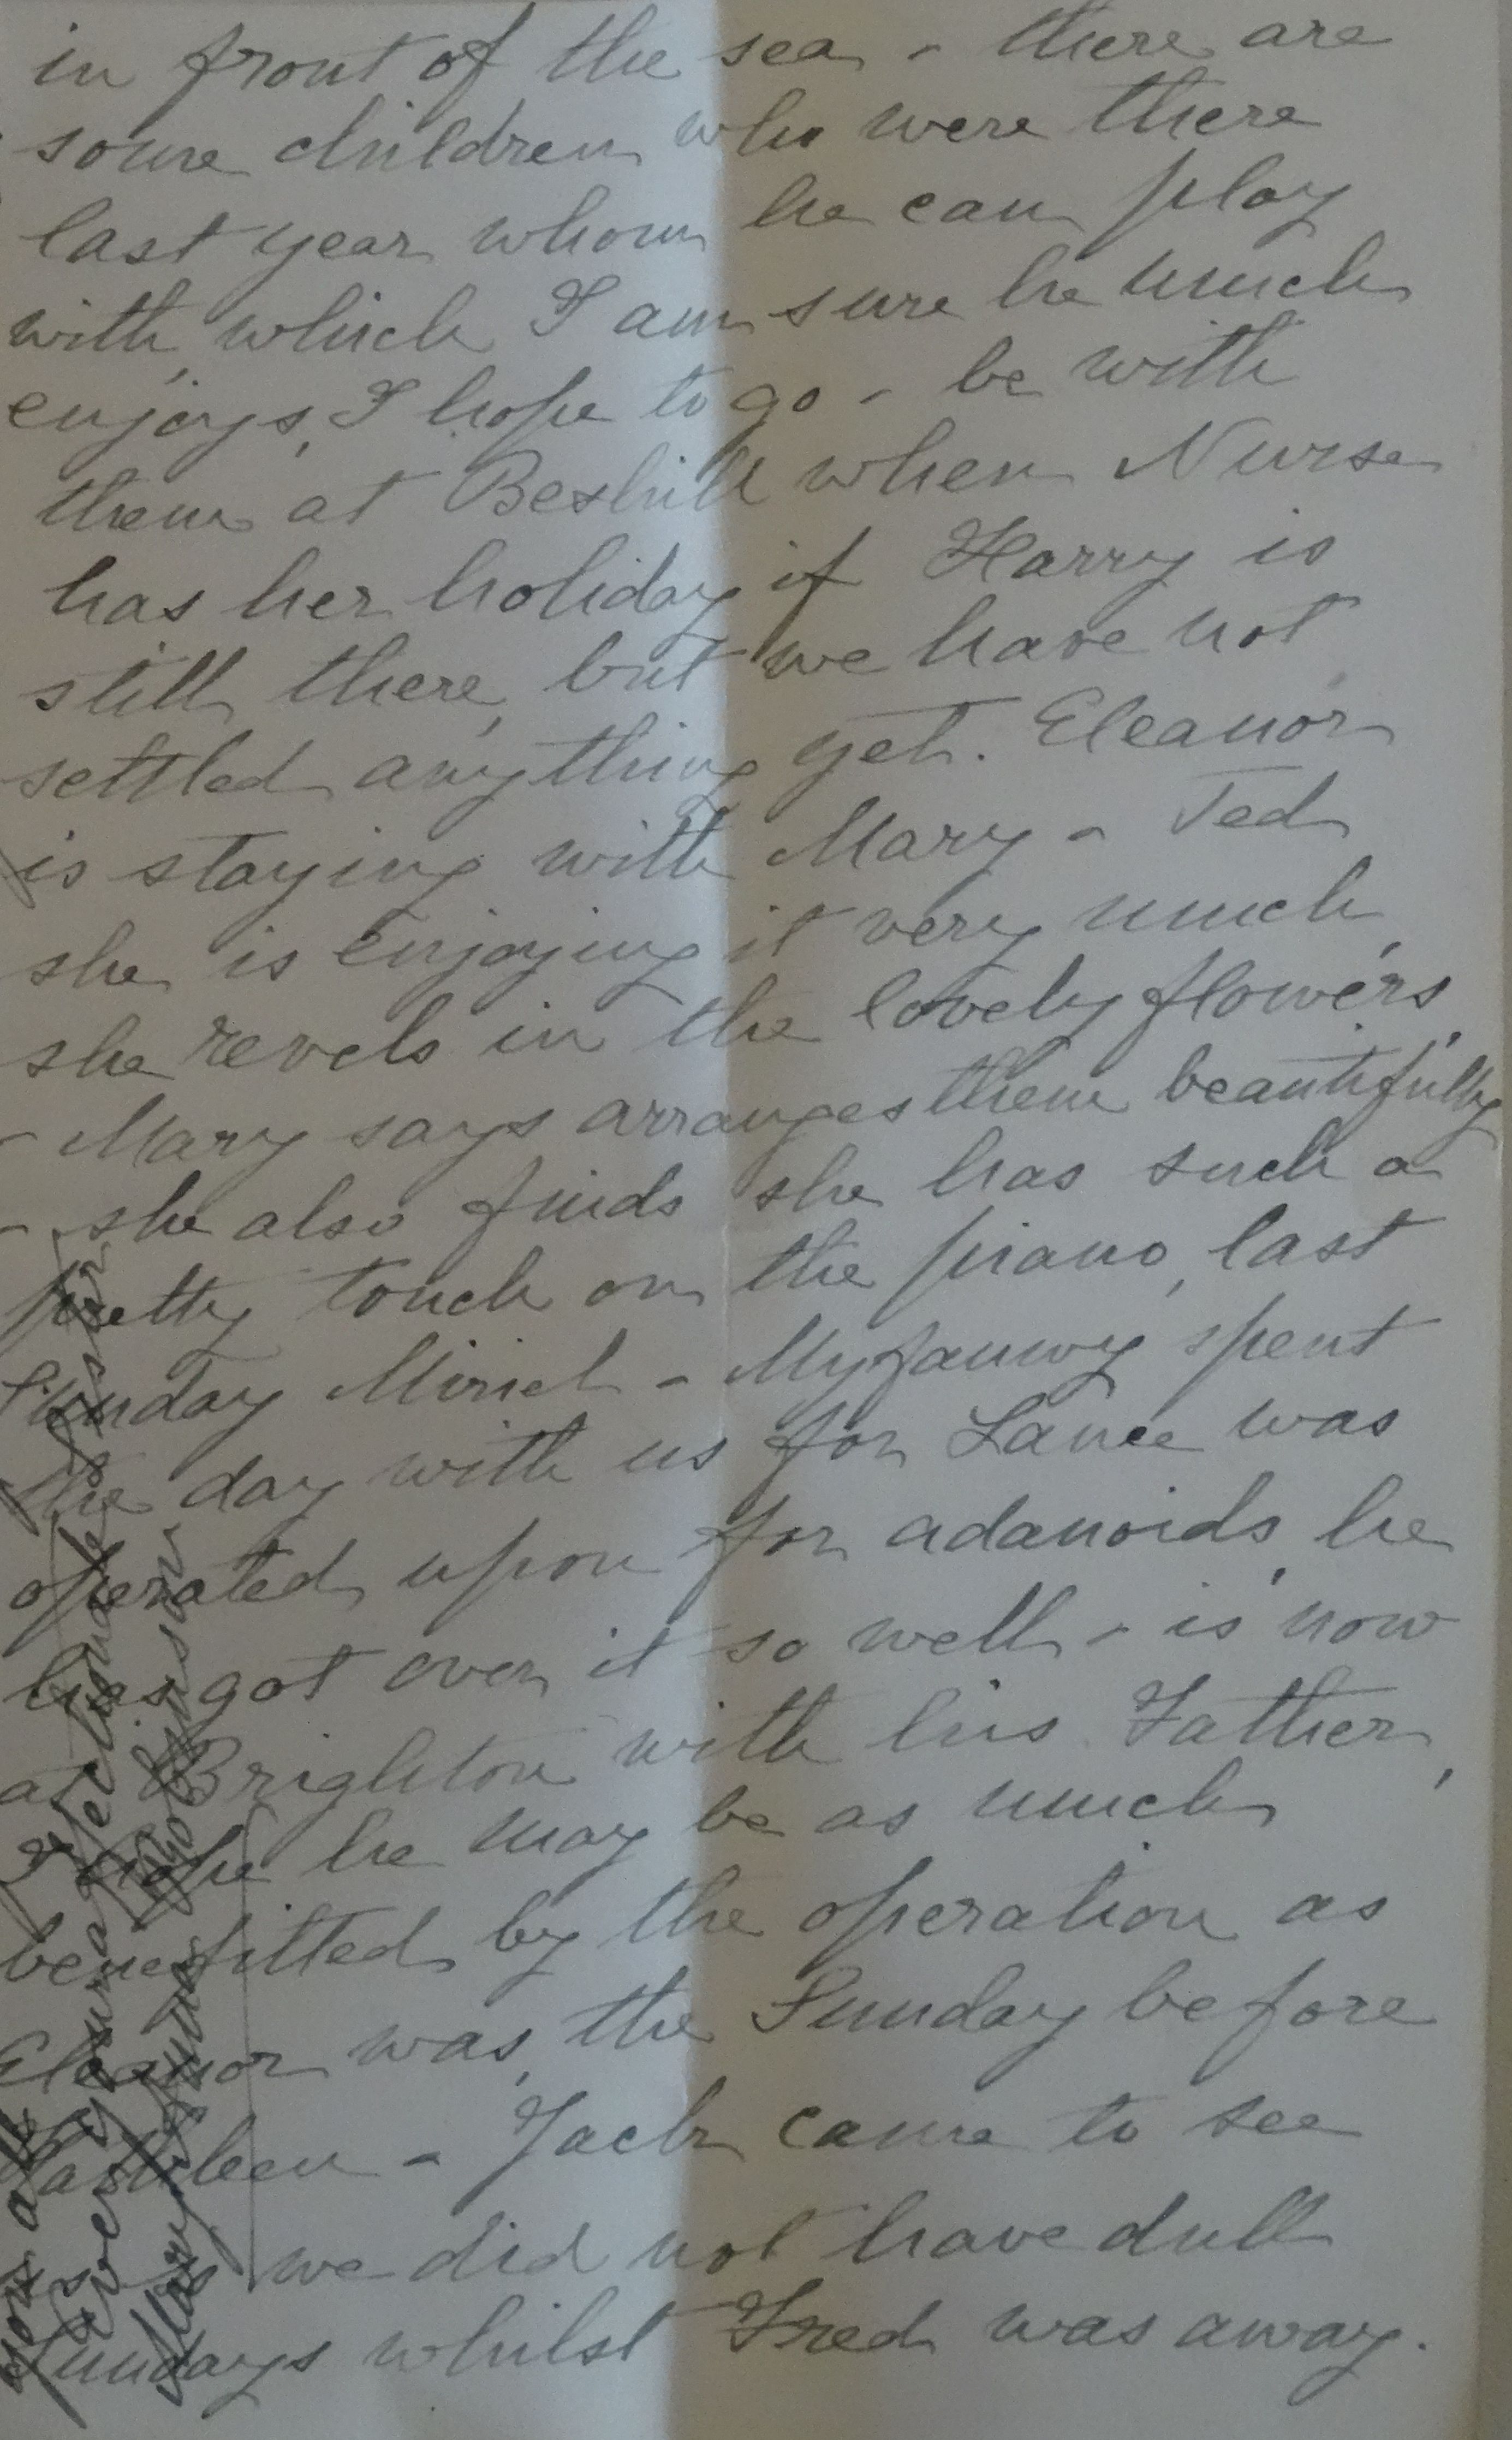 in front of the sea - there are
some children who were there
last year whom he can play
with, which I am sure he much
enjoys, I hope to go - be with
them at Bexhill when Nurse
has her holiday if Harry is
still there, but we have not
settled anything yet. Eleanor
is staying with Mary - Ted
she is enjoying it very much,
she revels in the lovely flowers,
- Mary says arranges them beautifully
- she also finds she has such a
pretty touch on the piano, last
Sunday Miriel - Myfanwy spent
the day with us for Lance was
operated upon for adanoids, he
has got over it so well - is now
at Brighton with his Father,
I hope he may be as much
benefitted by the operation as
Eleanor was, the Sunday before
Kathleen - Jack came to see
us - so we did not have dull
Sundays whilst Fred was away.
Ever your affectionate Sister
Mary